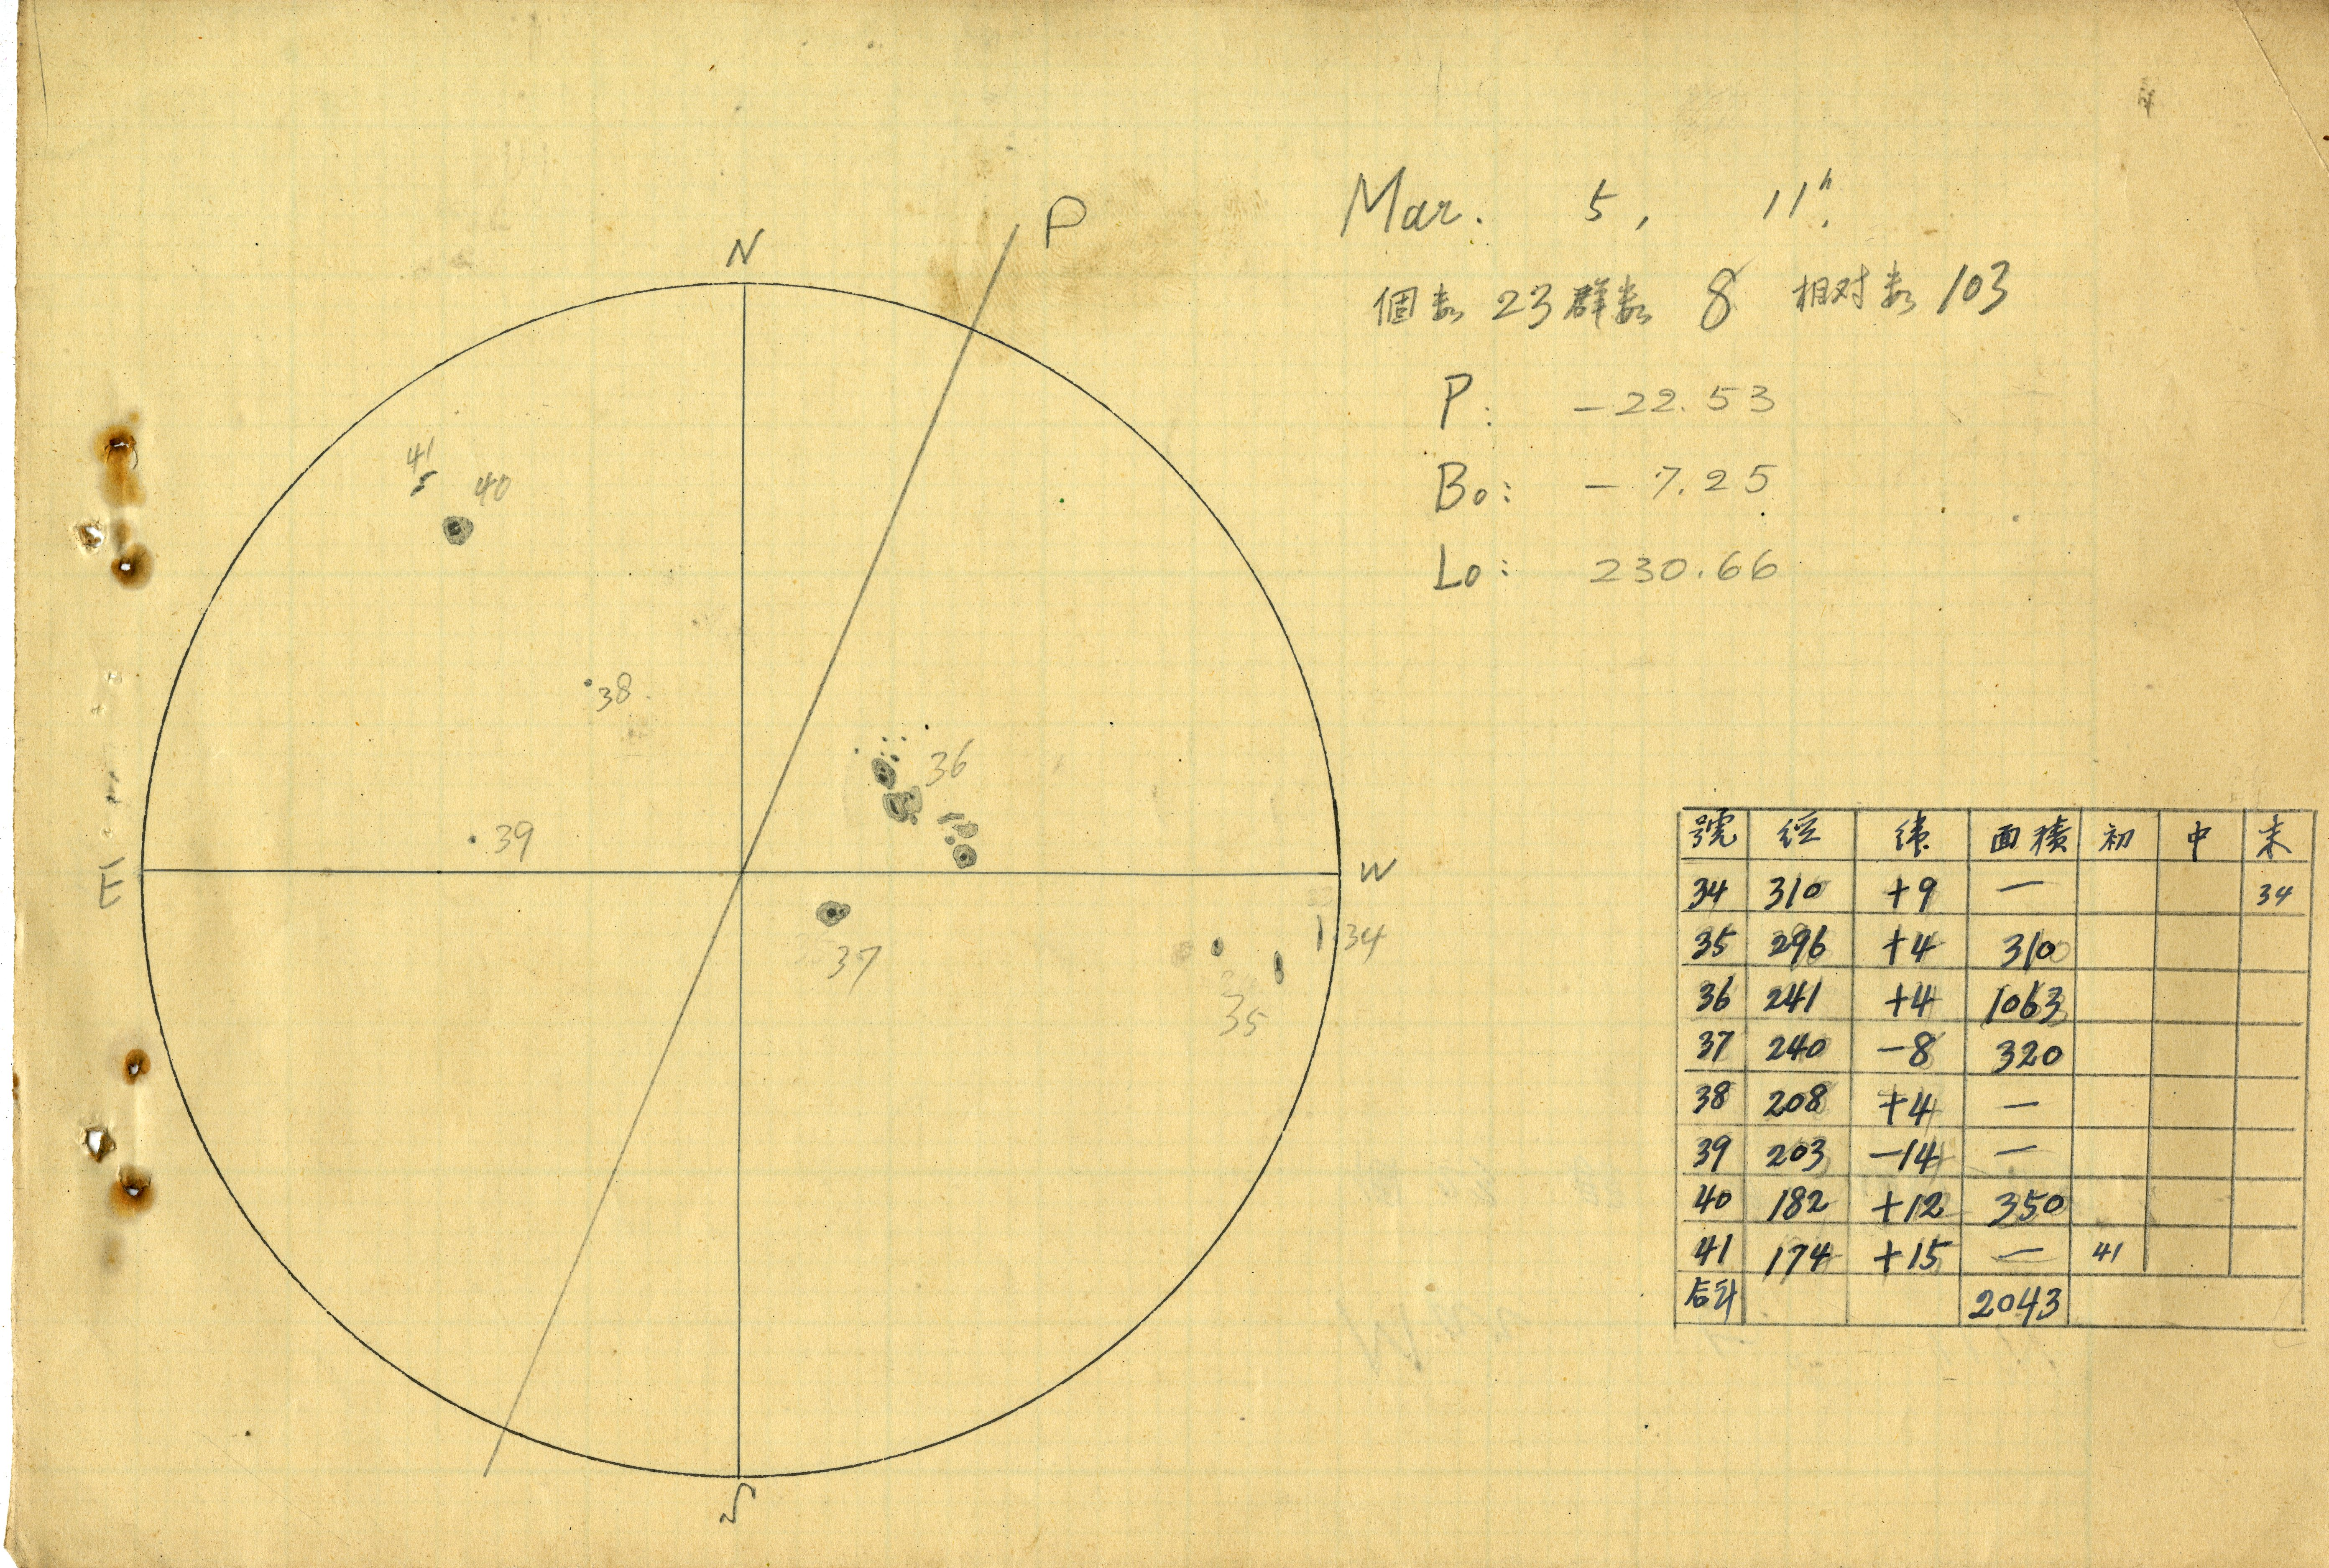 Mar. 5, 11h.
個数 23 群数 8 相対数 103
P: -22.53
B0: -7.25
L0: 230.66
N
P
41
40
38
36
39
E
W
37
34
35
S
號 経 緯 面積 初 中 末
34 310 +9 — 34
35 296 +4 310
36 241 +4 1063
37 240 -8 320
38 208 +4 —
39 203 -14 —
40 182 +12 350
41 174 +15 — 41
合計 2043